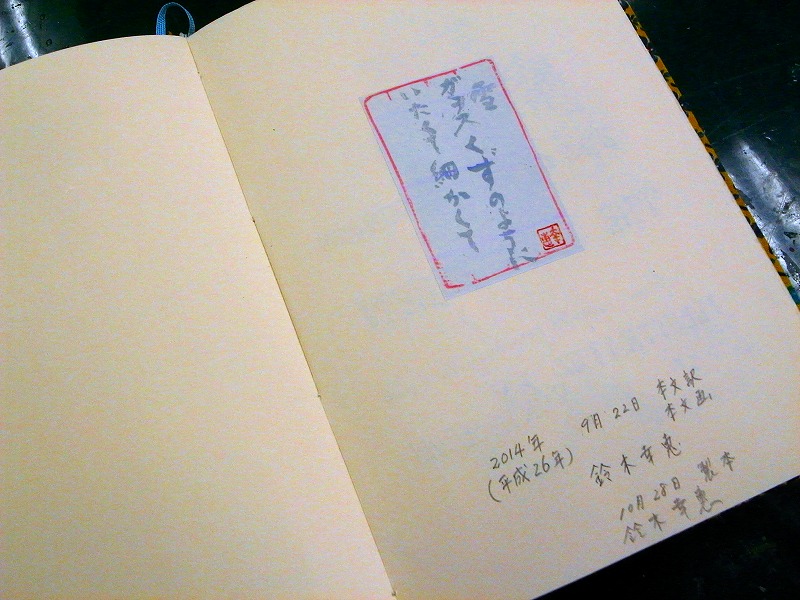 雪
ガラスくずのように
いたくて細かくて
2014年 9月22日 本文訳
本文画
(平成26年) 鈴木幸恵
10月28日 製本
鈴木幸恵